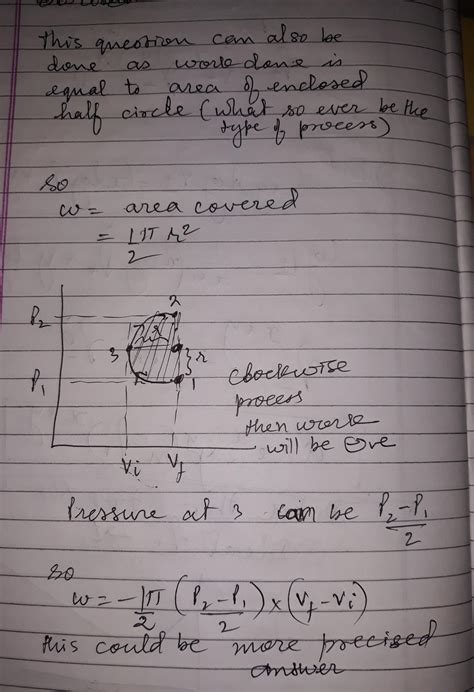 This question can also be
done as work done is
equal to area of enclosed
half circle (what so ever be the
type of process)
so
w = area covered
= 1/2 π r²
P₂
2
3
r
P₁
1
clockwise
process
then work
will be ⊖ve
Vi Vf
Pressure at 3 can be (P₂-P₁)/2
so
w = -1/2 π ((P₂-P₁)/2) × (Vf - Vi)
this could be more precised
answer